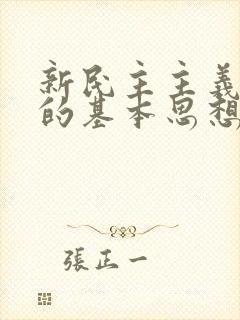 新民主主義
的基本思想
張正一